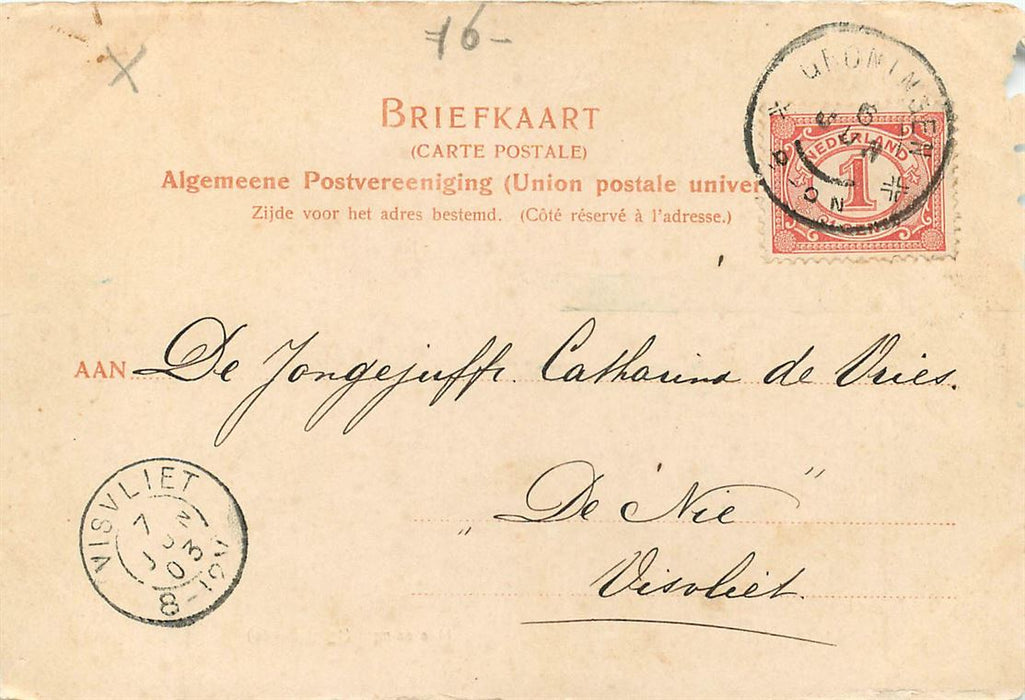 76-
X
BRIEFKAART
(CARTE POSTALE)
Algemeene Postvereeniging (Union postale univer
Zijde voor het adres bestemd. (Côté réservé à l'adresse.)
GRONINGEN
NEDERLAND
1
CENT
AAN De Jongejuffr. Catharina de Vries.
„De Nie”
Visvliet.
VISVLIET
8-12V